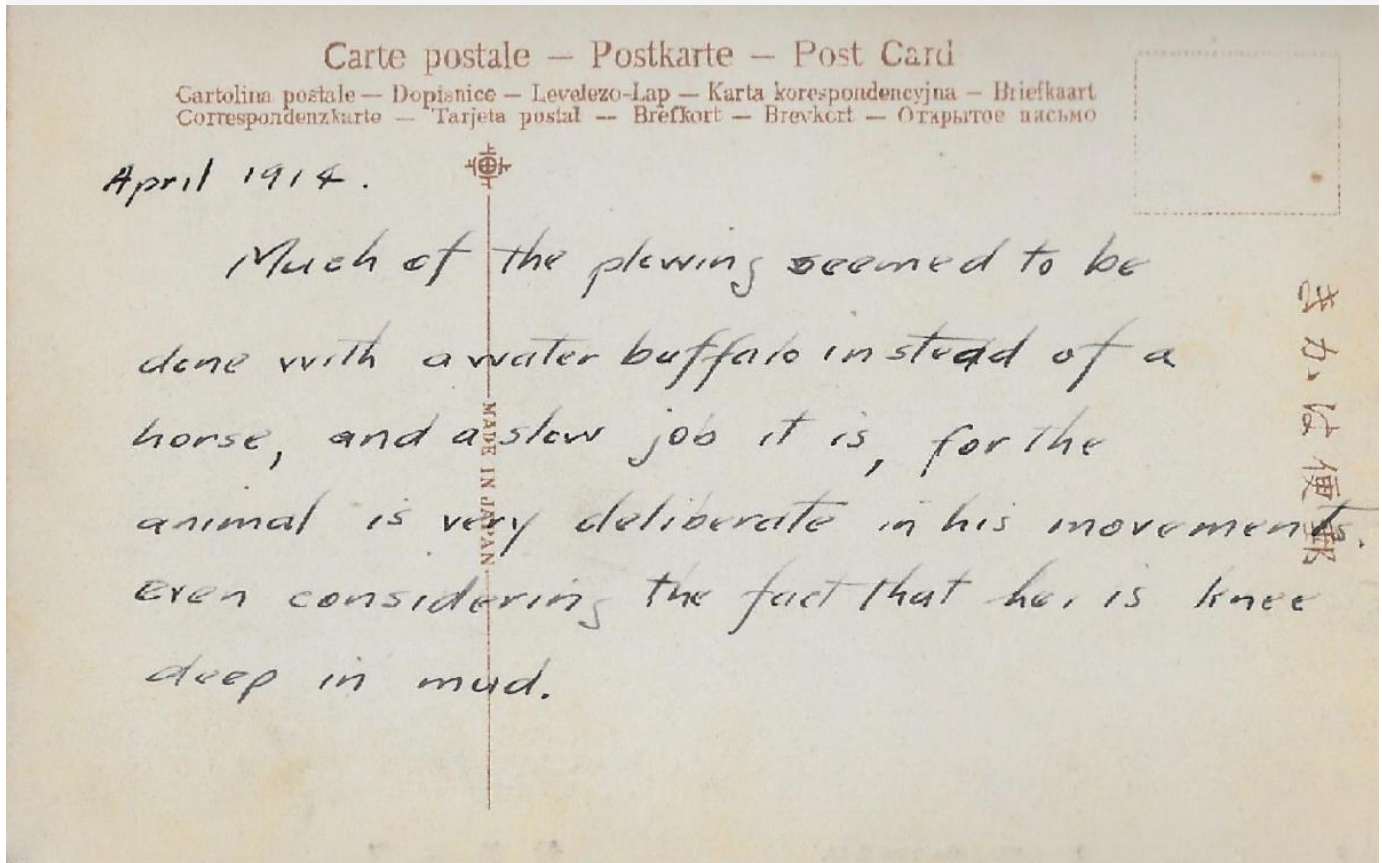 Carte postale — Postkarte — Post Card
Cartolina postale — Dopisnice — Levelezo-Lap — Karta korespondencyjna — Briefkaart
Correspondenzkarte — Tarjeta postal — Brefkort — Brevkort — Открытое письмо
April 1914.
Much of the plowing seemed to be
done with a water buffalo instead of a
horse, and a slow job it is, for the
animal is very deliberate in his movements.
even considering the fact that he, is knee
deep in mud.
MADE IN JAPAN
きかは便郵